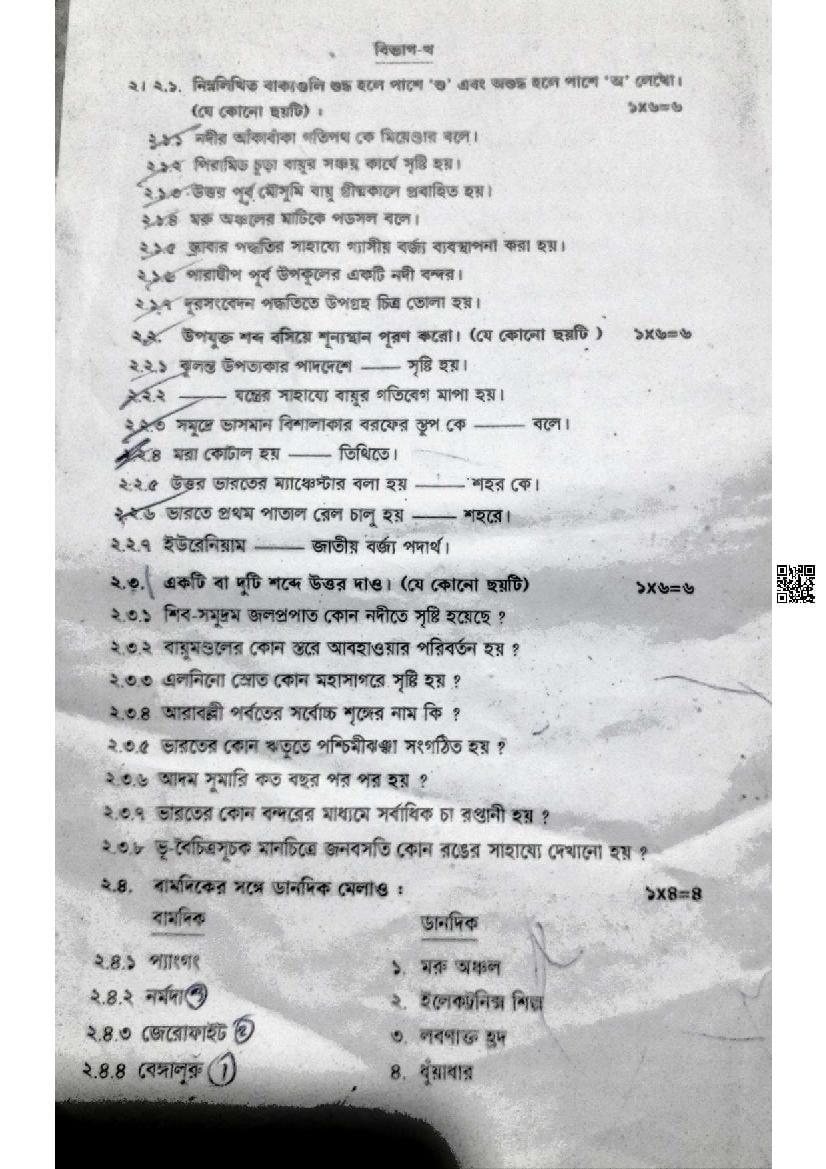 বিভাগ-খ
২। ২.১. নিম্নলিখিত বাক্যগুলি শুদ্ধ হলে পাশে ‘শু’ এবং অশুদ্ধ হলে পাশে ‘অ’ লেখো।
(যে কোনো ছয়টি) : ১X৬=৬
২.১.১ নদীর আঁকাবাঁকা গতিপথ কে মিয়েণ্ডার বলে।
২.১.২ পিরামিড চূড়া বায়ুর সঞ্চয় কার্যে সৃষ্টি হয়।
২.১.৩ উত্তর পূর্ব মৌসুমি বায়ু গ্রীষ্মকালে প্রবাহিত হয়।
২.১.৪ মরু অঞ্চলের মাটিকে পডসল বলে।
২.১.৫ স্ক্রাবার পদ্ধতির সাহায্যে গ্যাসীয় বর্জ্য ব্যবস্থাপনা করা হয়।
২.১.৬ পারাদ্বীপ পূর্ব উপকূলের একটি নদী বন্দর।
২.১.৭ দূরসংবেদন পদ্ধতিতে উপগ্রহ চিত্র তোলা হয়।
২.২. উপযুক্ত শব্দ বসিয়ে শূন্যস্থান পূরণ করো। (যে কোনো ছয়টি ) ১X৬=৬
২.২.১ ঝুলন্ত উপত্যকার পাদদেশে —— সৃষ্টি হয়।
২.২.২ —— যন্ত্রের সাহায্যে বায়ুর গতিবেগ মাপা হয়।
২.২.৩ সমুদ্রে ভাসমান বিশালাকার বরফের স্তূপ কে —— বলে।
২.২.৪ মরা কোটাল হয় —— তিথিতে।
২.২.৫ উত্তর ভারতের ম্যাঞ্চেস্টার বলা হয় —— শহর কে।
২.২.৬ ভারতে প্রথম পাতাল রেল চালু হয় —— শহরে।
২.২.৭ ইউরেনিয়াম —— জাতীয় বর্জ্য পদার্থ।
২.৩. একটি বা দুটি শব্দে উত্তর দাও। (যে কোনো ছয়টি) ১X৬=৬
২.৩.১ শিব-সমুদ্রম জলপ্রপাত কোন নদীতে সৃষ্টি হয়েছে ?
২.৩.২ বায়ুমণ্ডলের কোন স্তরে আবহাওয়ার পরিবর্তন হয় ?
২.৩.৩ এলনিনো স্রোত কোন মহাসাগরে সৃষ্টি হয় ?
২.৩.৪ আরাবল্লী পর্বতের সর্বোচ্চ শৃঙ্গের নাম কি ?
২.৩.৫ ভারতের কোন ঋতুতে পশ্চিমীঝঞ্ঝা সংগঠিত হয় ?
২.৩.৬ আদম সুমারি কত বছর পর পর হয় ?
২.৩.৭ ভারতের কোন বন্দরের মাধ্যমে সর্বাধিক চা রপ্তানী হয় ?
২.৩.৮ ভূ-বৈচিত্রসূচক মানচিত্রে জনবসতি কোন রঙের সাহায্যে দেখানো হয় ?
২.৪. বামদিকের সঙ্গে ডানদিক মেলাও : ১X৪=৪
বামদিক ডানদিক
২.৪.১ প্যাংগং ১. মরু অঞ্চল
২.৪.২ নর্মদা ২. ইলেকট্রনিক্স শিল্প
২.৪.৩ জেরোফাইট 2 ৩. লবণাক্ত হ্রদ
২.৪.৪ বেঙ্গালুরু 1 ৪. ধুঁয়াধার